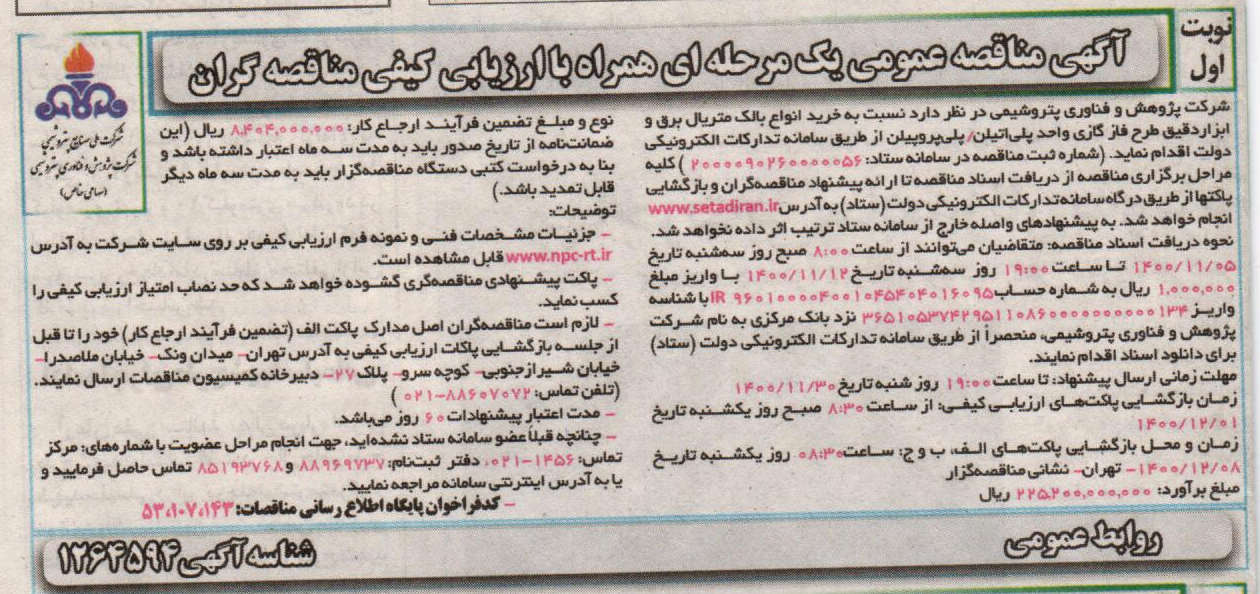 نوبت
اول
آگهی مناقصه عمومی یک مرحله ای همراه با ارزیابی کیفی مناقصه گران
شرکت ملی صنایع پتروشیمی
شرکت پژوهش و فناوری پتروشیمی
(سهامی خاص)
شرکت پژوهش و فناوری پتروشیمی در نظر دارد نسبت به خرید انواع بالک متریال برق و
ابزاردقیق طرح فاز گازی واحد پلی‌اتیلن/پلی‌پروپیلن از طریق سامانه تدارکات الکترونیکی
دولت اقدام نماید. (شماره ثبت مناقصه در سامانه ستاد: ۲۰۰۰۰۹۰۲۶۰۰۰۰۰۵۶ ) کلیه
مراحل برگزاری مناقصه از دریافت اسناد مناقصه تا ارائه پیشنهاد مناقصه‌گران و بازگشایی
پاکتها از طریق درگاه سامانه تدارکات الکترونیکی دولت (ستاد) به آدرس www.setadiran.ir
انجام خواهد شد. به پیشنهادهای واصله خارج از سامانه ستاد ترتیب اثر داده نخواهد شد.
نحوه دریافت اسناد مناقصه: متقاضیان می‌توانند از ساعت ۸:۰۰ صبح روز سه‌شنبه تاریخ
۱۴۰۰/۱۱/۰۵ تــا ســاعت ۱۹:۰۰ روز سه‌شنبه تاریخ ۱۴۰۰/۱۱/۱۲ بــا واریز مبلغ
۱,۰۰۰,۰۰۰ ریال به شماره حساب IR ۹۶۰۱۰۰۰۰۴۰۰۱۰۴۵۴۰۴۰۱۶۰۹۵ با شناسه
واریــز ۳۶۵۱۰۵۳۷۴۲۹۵۱۱۰۸۶۰۰۰۰۰۰۰۰۰۰۰۱۳۴ نزد بانک مرکزی به نام شــرکت
پژوهش و فناوری پتروشیمی، منحصراً از طریق سامانه تدارکات الکترونیکی دولت (ستاد)
برای دانلود اسناد اقدام نمایند.
مهلت زمانی ارسال پیشنهاد: تا ساعت ۱۹:۰۰ روز شنبه تاریخ ۱۴۰۰/۱۱/۳۰
زمـان بازگشایی پاکت‌هــای ارزیابــی کیفــی: از ســاعت ۸:۳۰ صبــح روز یکشــنبه تاریخ
۱۴۰۰/۱۲/۰۱
زمــان و محــل بازگشــایی پاکت‌هــای الــف، ب و ج: ســاعت ۰۸:۳۰ روز یکشــنبه تاریــخ
۱۴۰۰/۱۲/۰۸– تهران– نشانی مناقصه‌گزار
مبلغ برآورد: ۲۲۵,۲۰۰,۰۰۰,۰۰۰ ریال
نوع و مبلــغ تضمین فرآینــد ارجــاع کار: ۸,۴۰۴,۰۰۰,۰۰۰ ریال (این
ضمانت‌نامه از تاریخ صدور باید به مدت سه ماه اعتبار داشته باشد و
بنا به درخواست کتبی دستگاه مناقصه‌گزار باید به مدت سه ماه دیگر
قابل تمدید باشد.)
توضیحات:
– جزئیــات مشــخصات فنــی و نمونه فرم ارزیابی کیفی بر روی سایت شرکت به آدرس
www.npc-rt.ir قابل مشاهده است.
– پاکت پیشــنهادی مناقصه‌گری گشــوده خواهد شــد که حد نصاب امتیاز ارزیابی کیفی را
کسب نماید.
– لازم است مناقصه‌گران اصل مدارک پاکت الف (تضمین فرآیند ارجاع کار) خود را تا قبل
از جلســه بازگشــایی پاکات ارزیابی کیفی به آدرس تهران– میدان ونک– خیابان ملاصدرا–
خیابان شــیراز جنوبی– کوچه سرو– پلاک ۲۷– دبیرخانه کمیسیون مناقصات ارسال نمایند.
(تلفن تماس: ۸۸۶۰۷۰۷۲–۰۲۱ )
– مدت اعتبار پیشنهادات ۶۰ روز می‌باشد.
– چنانچه قبلاً عضو سامانه ستاد نشده‌اید، جهت انجام مراحل عضویت با شماره‌های: مرکز
تماس: ۱۴۵۶–۰۲۱، دفتر ثبت‌نام: ۸۸۹۶۹۷۳۷ و ۸۵۱۹۳۷۶۸ تماس حاصل فرمایید و
یا به آدرس اینترنتی سامانه مراجعه نمایید.
– کدفراخوان پایگاه اطلاع رسانی مناقصات: ۵۳,۱۰۷,۱۴۳
روابط عمومی
شناسه آگهی ۱۲۶۴۵۹۴